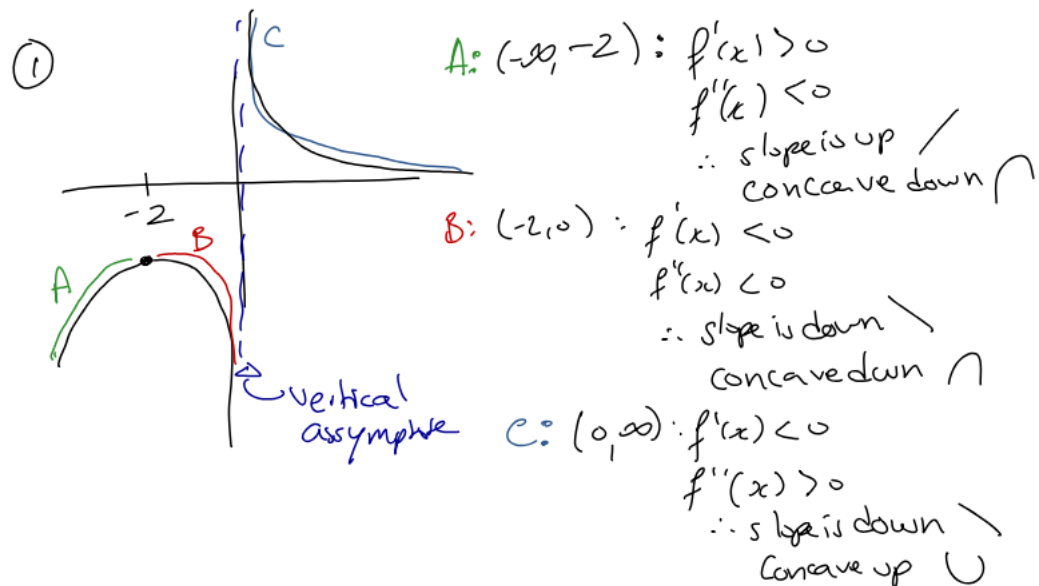 ①
C
-2
A
B
vertical
assymptote
A: (-∞, -2) : f'(x) > 0
f''(x) < 0
∴ slope is up /
conccave down ∩
B: (-2, 0) : f'(x) < 0
f''(x) < 0
∴ slope is down \
concave down ∩
C: (0, ∞) : f'(x) < 0
f''(x) > 0
∴ slope is down \
Concave up ∪